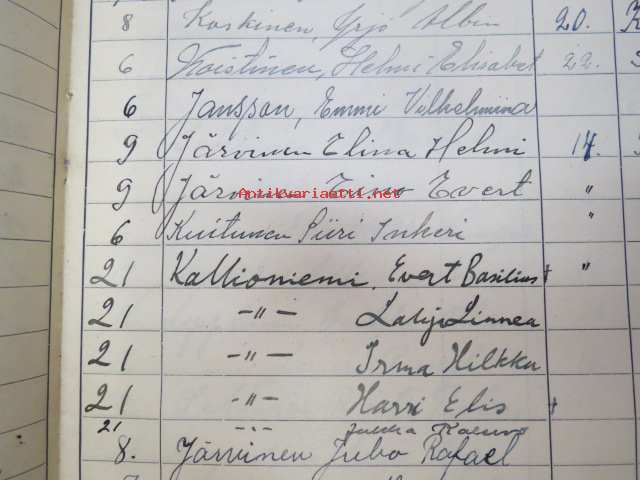 8 Koskinen, Yrjö Albin 20.
6 Koistinen, Helmi Elisabet 22.
6 Jansson, Emmi Vilhelmiina
9 Järvinen Elina Helmi 14.
9 Järvinen Eino Evert "
Antikvariaatti.net
6 Kuitunen Siiri Inkeri "
21 Kallioniemi, Evert Basilius + "
21 -"- Lahja Linnea
21 -"- Irma Hilkka
21 -"- Harri Elis +
21 -"- Jukka Kalervo
8. Järvinen Juho Rafael